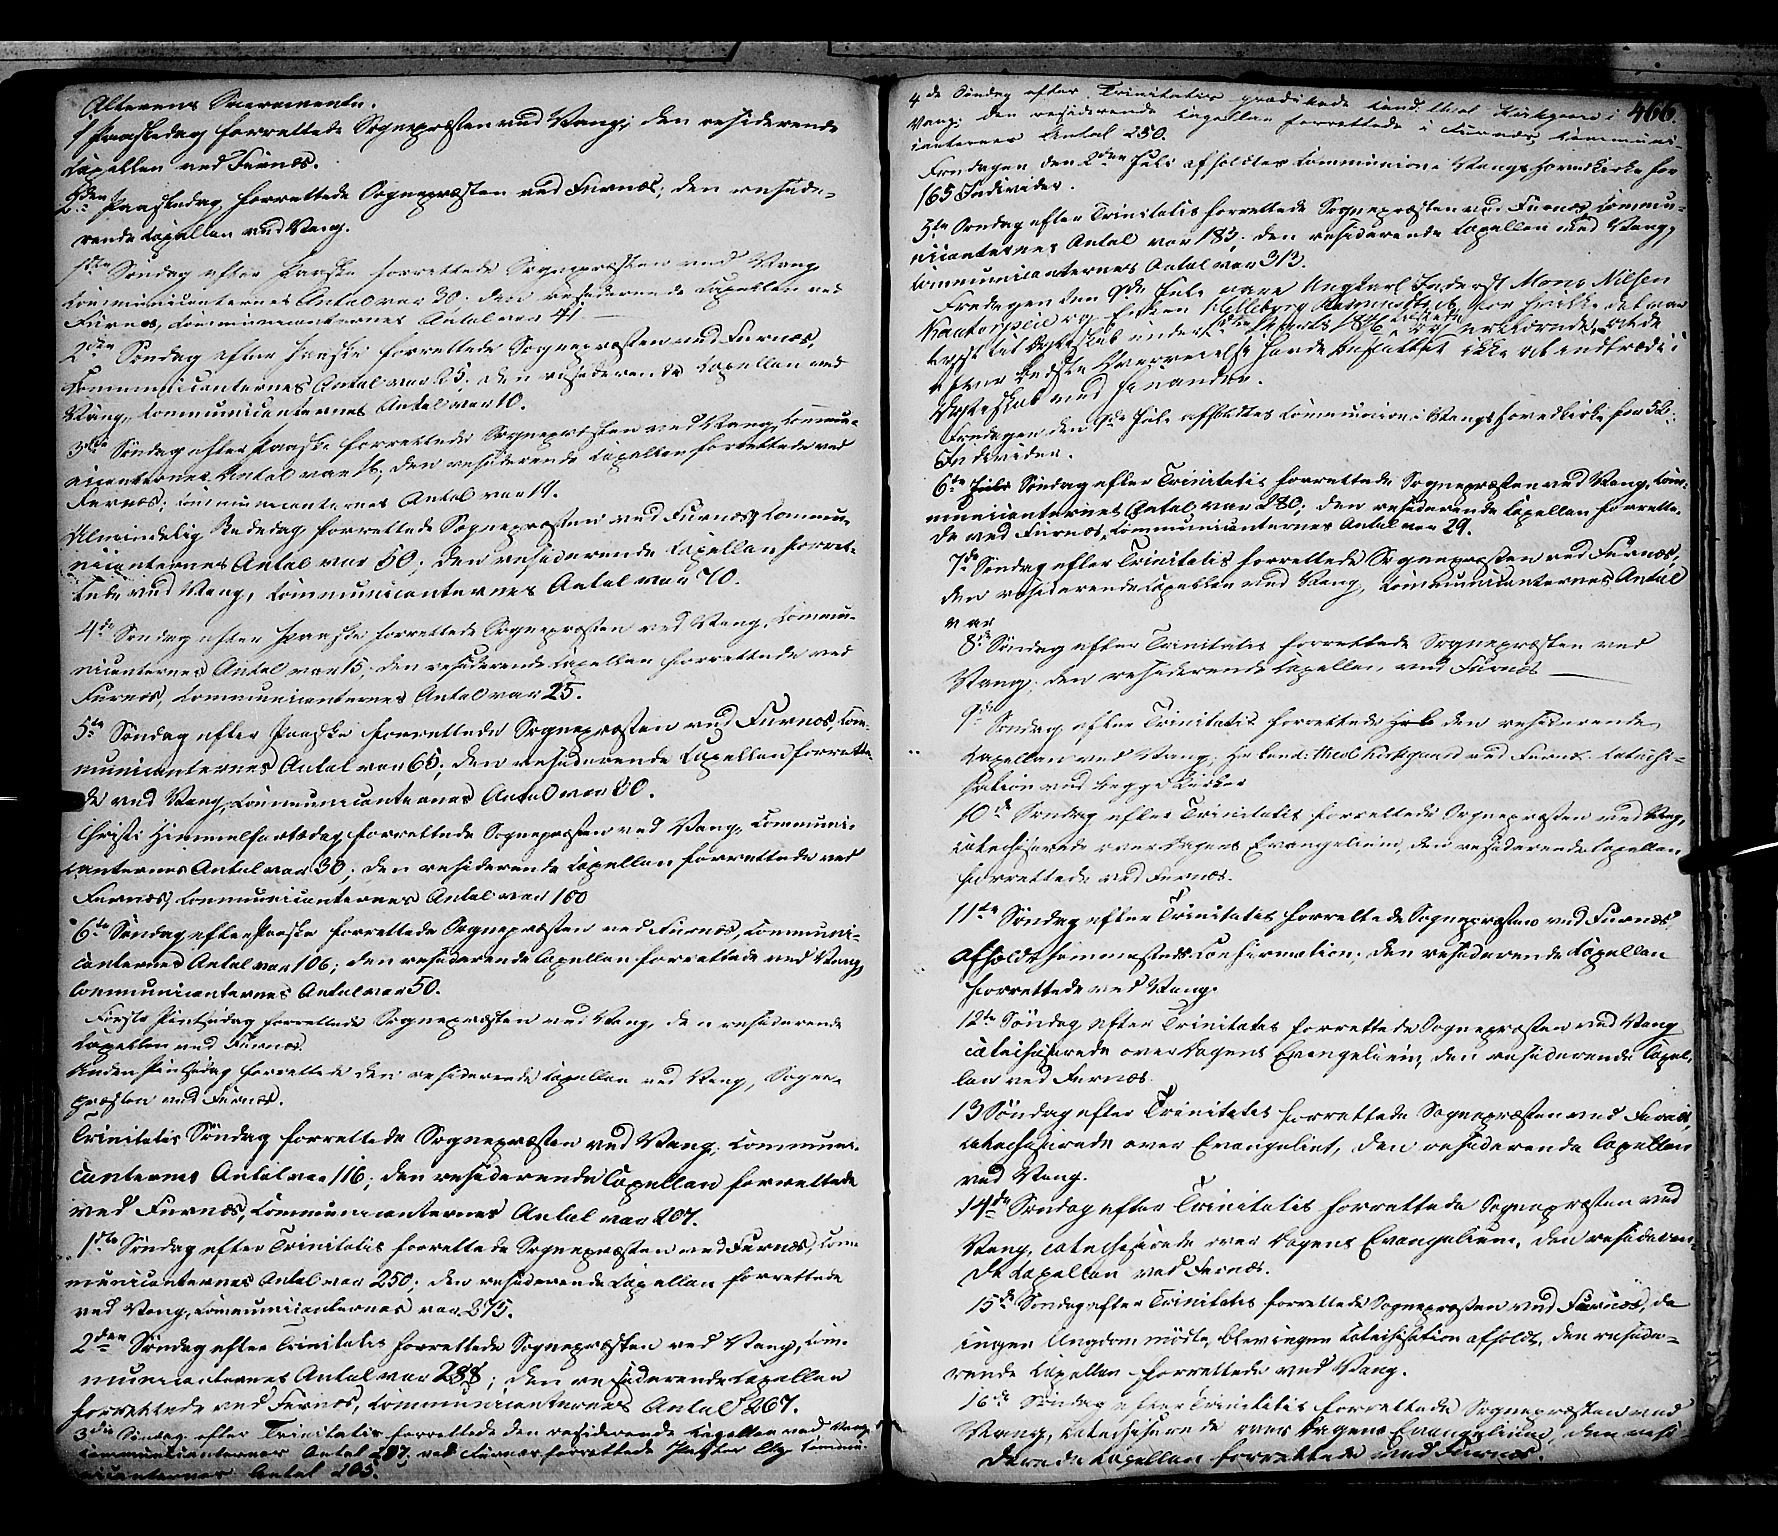 Alterens Sacramente.
1 Paaskedag forrettede Sognepræsten ved Vang; den residerende
Capellan ved Furnæs.
2den Paaskedag forrettede Sognepræsten ved Furnæs; den reside-
rende Capellan ved Vang.
1ste Søndag efter Paaske forrettede Sognepræsten ved Vang
Communicanternes Antal var 30. den residerende Capellan ved
Furnæs, Communicanternes Antal var 41 —
2den Søndag efter Paaske forrettede Sognepræsten ved Furnæs,
Communicanternes Antal var 25. den residerende Capellan ved
Vang, Communicanternes Antal var 10.
3die Søndag efter Paaske forrettede Sognepræsten ved Vang, Commu-
nicanternes Antal var 16; den residerende Capellan forrettede ved
Furnæs; Communicanternes Antal var 19.
Almindelig Bededag forrettede Sognepræsten ved Furnæs, Commu-
nicanternes Antal var 50; den residerende Capellan forret-
tede ved Vang, Communicanternes Antal var 70.
4de Søndag efter Paaske forrettede Sognepræsten ved Vang, Commu-
nicanternes Antal var 15; den residerende Capellan forrettede ved
Furnæs, Communicanternes Antal var 25.
5te Søndag efter Paaske forrettede Sognepræsten ved Furnæs, Com-
municanternes Antal var 65; den residerende Capellan forrette-
de ved Vang, Communicanternes Antal var 80.
Christi Himmelfartsdag forrettede Sognepræsten ved Vang, Communi-
canternes Antal var 30; den residerende Capellan forrettede ved
Furnæs, Communicanternes Antal var 160
6te Søndag efter Paaske forrettede Sognepræsten ved Furnæs, Communi-
canternes Antal var 106; den residerende Capellan forrettede ved Vang,
Communicanternes Antal var 50.
Første Pintsedag forrettede Sognepræsten ved Vang, den residerende
Capellan ved Furnæs.
Anden Pintsedag forrettede den residerende Capellan ved Vang, Sogne-
præsten ved Furnæs.
Trinitatis Søndag forrettede Sognepræsten ved Vang, Communi-
canternes Antal var 116; den residerende Capellan forrettede
ved Furnæs, Communicanternes Antal var 207.
1ste Søndag efter Trinitatis forrettede Sognepræsten ved Furnæs, Com-
municanternes Antal var 250; den residerende Capellan forrettede
ved Vang, Communicanternes var 275.
2den Søndag efter Trinitatis forrettede Sognepræsten ved Vang, Com-
municanternes Antal var 288; den residerende Capellan
forrettede ved Furnæs, Communicanternes Antal 267.
3die Søndag efter Trinitatis forrettede den residerende Capellan ved Vang,
Communicanternes Antal 287; ved Furnæs forrettede Pastor Commu-
nicanternes Antal 205.
466.
4de Søndag efter Trinitatis prædikede Cand. theol. Kirkgaard i
Vang; den residerende Capellan forrettede i Furnæs, Communi-
canternes Antal 250.
Fredagen den 2den Juli afholdtes Communion i Vangs Hovedkirke for
165 Individer.
5te Søndag efter Trinitatis forrettede Sognepræsten ved Furnæs, Commu-
nicanternes Antal var 183; den residerende Capellan ved Vang,
Communicanternes Antal var 313.
Fredagen den 9de Juli vare Ungkarl Inderst Mons Nilsen
og Enken for hvilke det var
lyst til Ægteskab under 1846 erklærede, at de
efter bedste Overveielse havde besluttet ikke at indtræde i
Ægteskab med hinanden.
Fredagen den 9de Juli afholdtes Communion i Vangs Hovedkirke for 52
Individer.
6te Søndag efter Trinitatis forrettede Sognepræsten ved Vang, Com-
municanternes Antal var 280; den residerende Capellan forrette-
de ved Furnæs, Communicanternes Antal var 29.
7de Søndag efter Trinitatis forrettede Sognepræsten ved Furnæs,
den residerende Capellan ved Vang, Communicanternes Antal
var
8de Søndag efter Trinitatis forrettede Sognepræsten ved
Vang; den residerende Capellan ved Furnæs —
9de Søndag efter Trinitatis forrettede den residerende
Capellan ved Vang; Hr Cand: theol Kirkgaard ved Furnæs. Catechi-
sation ved begge Kirker
10de Søndag efter Trinitatis forrettede Sognepræsten ved Vang,
catechiserede over Dagens Evangelium, den residerende Capellan
forrettede ved Furnæs.
11te Søndag efter Trinitatis forrettede Sognepræsten ved Furnæs,
afholdt sammesteds Confirmation; den residerende Capellan
forrettede ved Vang.
12te Søndag efter Trinitatis forrettede Sognepræsten ved Vang
catechiserede over Dagens Evangelium, den residerende Capel-
lan ved Furnæs.
13 Søndag efter Trinitatis forrettede Sognepræsten ved Furnæs,
catechiserede over Evangeliet, den residerende Capellan
ved Vang.
14de Søndag efter Trinitatis forrettede Sognepræsten ved
Vang, catechiserede over Dagens Evangelium, den resideren-
de Capellan ved Furnæs.
15de Søndag efter Trinitatis forrettede Sognepræsten ved Furnæs, da
ingen Ungdom mødte, blev ingen Catechisation afholdt, den reside-
rende Capellan forrettede ved Vang.
16de Søndag efter Trinitatis forrettede Sognepræsten ved
Vang, catechiserede over Dagens Evangelium, den resi-
derende Capellan forrettede ved Furnæs.